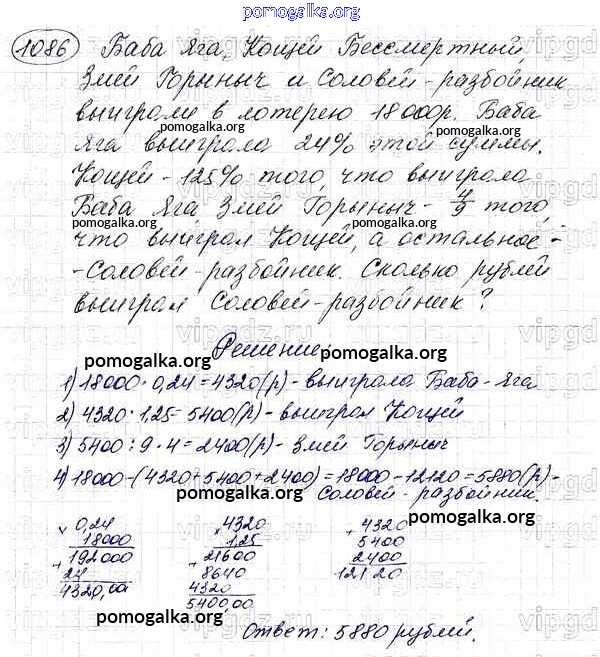 pomogalka.org
1086 Баба Яга, Кощей Бессмертный,
Змей Горыныч и Соловей-разбойник
выиграли в лотерею 18000р. Баба
pomogalka.org pomogalka.org
Яга выиграла 24% этой суммы.
Кощей - 125% того, что выиграла
Баба Яга Змей Горыныч - 4/9 того,
pomogalka.org pomogalka.org
что выиграл Кощей, а остальное -
- Соловей-разбойник. Сколько рублей
выиграл Соловей-разбойник?
Решение:
pomogalka.org pomogalka.org
1) 18000 · 0,24 = 4320(р) - выиграла Баба-Яга
2) 4320 · 1,25 = 5400(р) - выиграл Кощей
3) 5400 : 9 · 4 = 2400(р) - Змей Горыныч
4) 18000 - (4320 + 5400 + 2400) = 18000 - 12120 = 5880(р) -
pomogalka.org Соловей-разбойник.
pomogalka.org
× 0,24 × 4320 + 4320
18000 1,25 5400
+ 192000 + 21600 2400
24 8640 12120
4320,00 4320
5400,00
pomogalka.org pomogalka.org
Ответ: 5880 рублей.
pomogalka.org